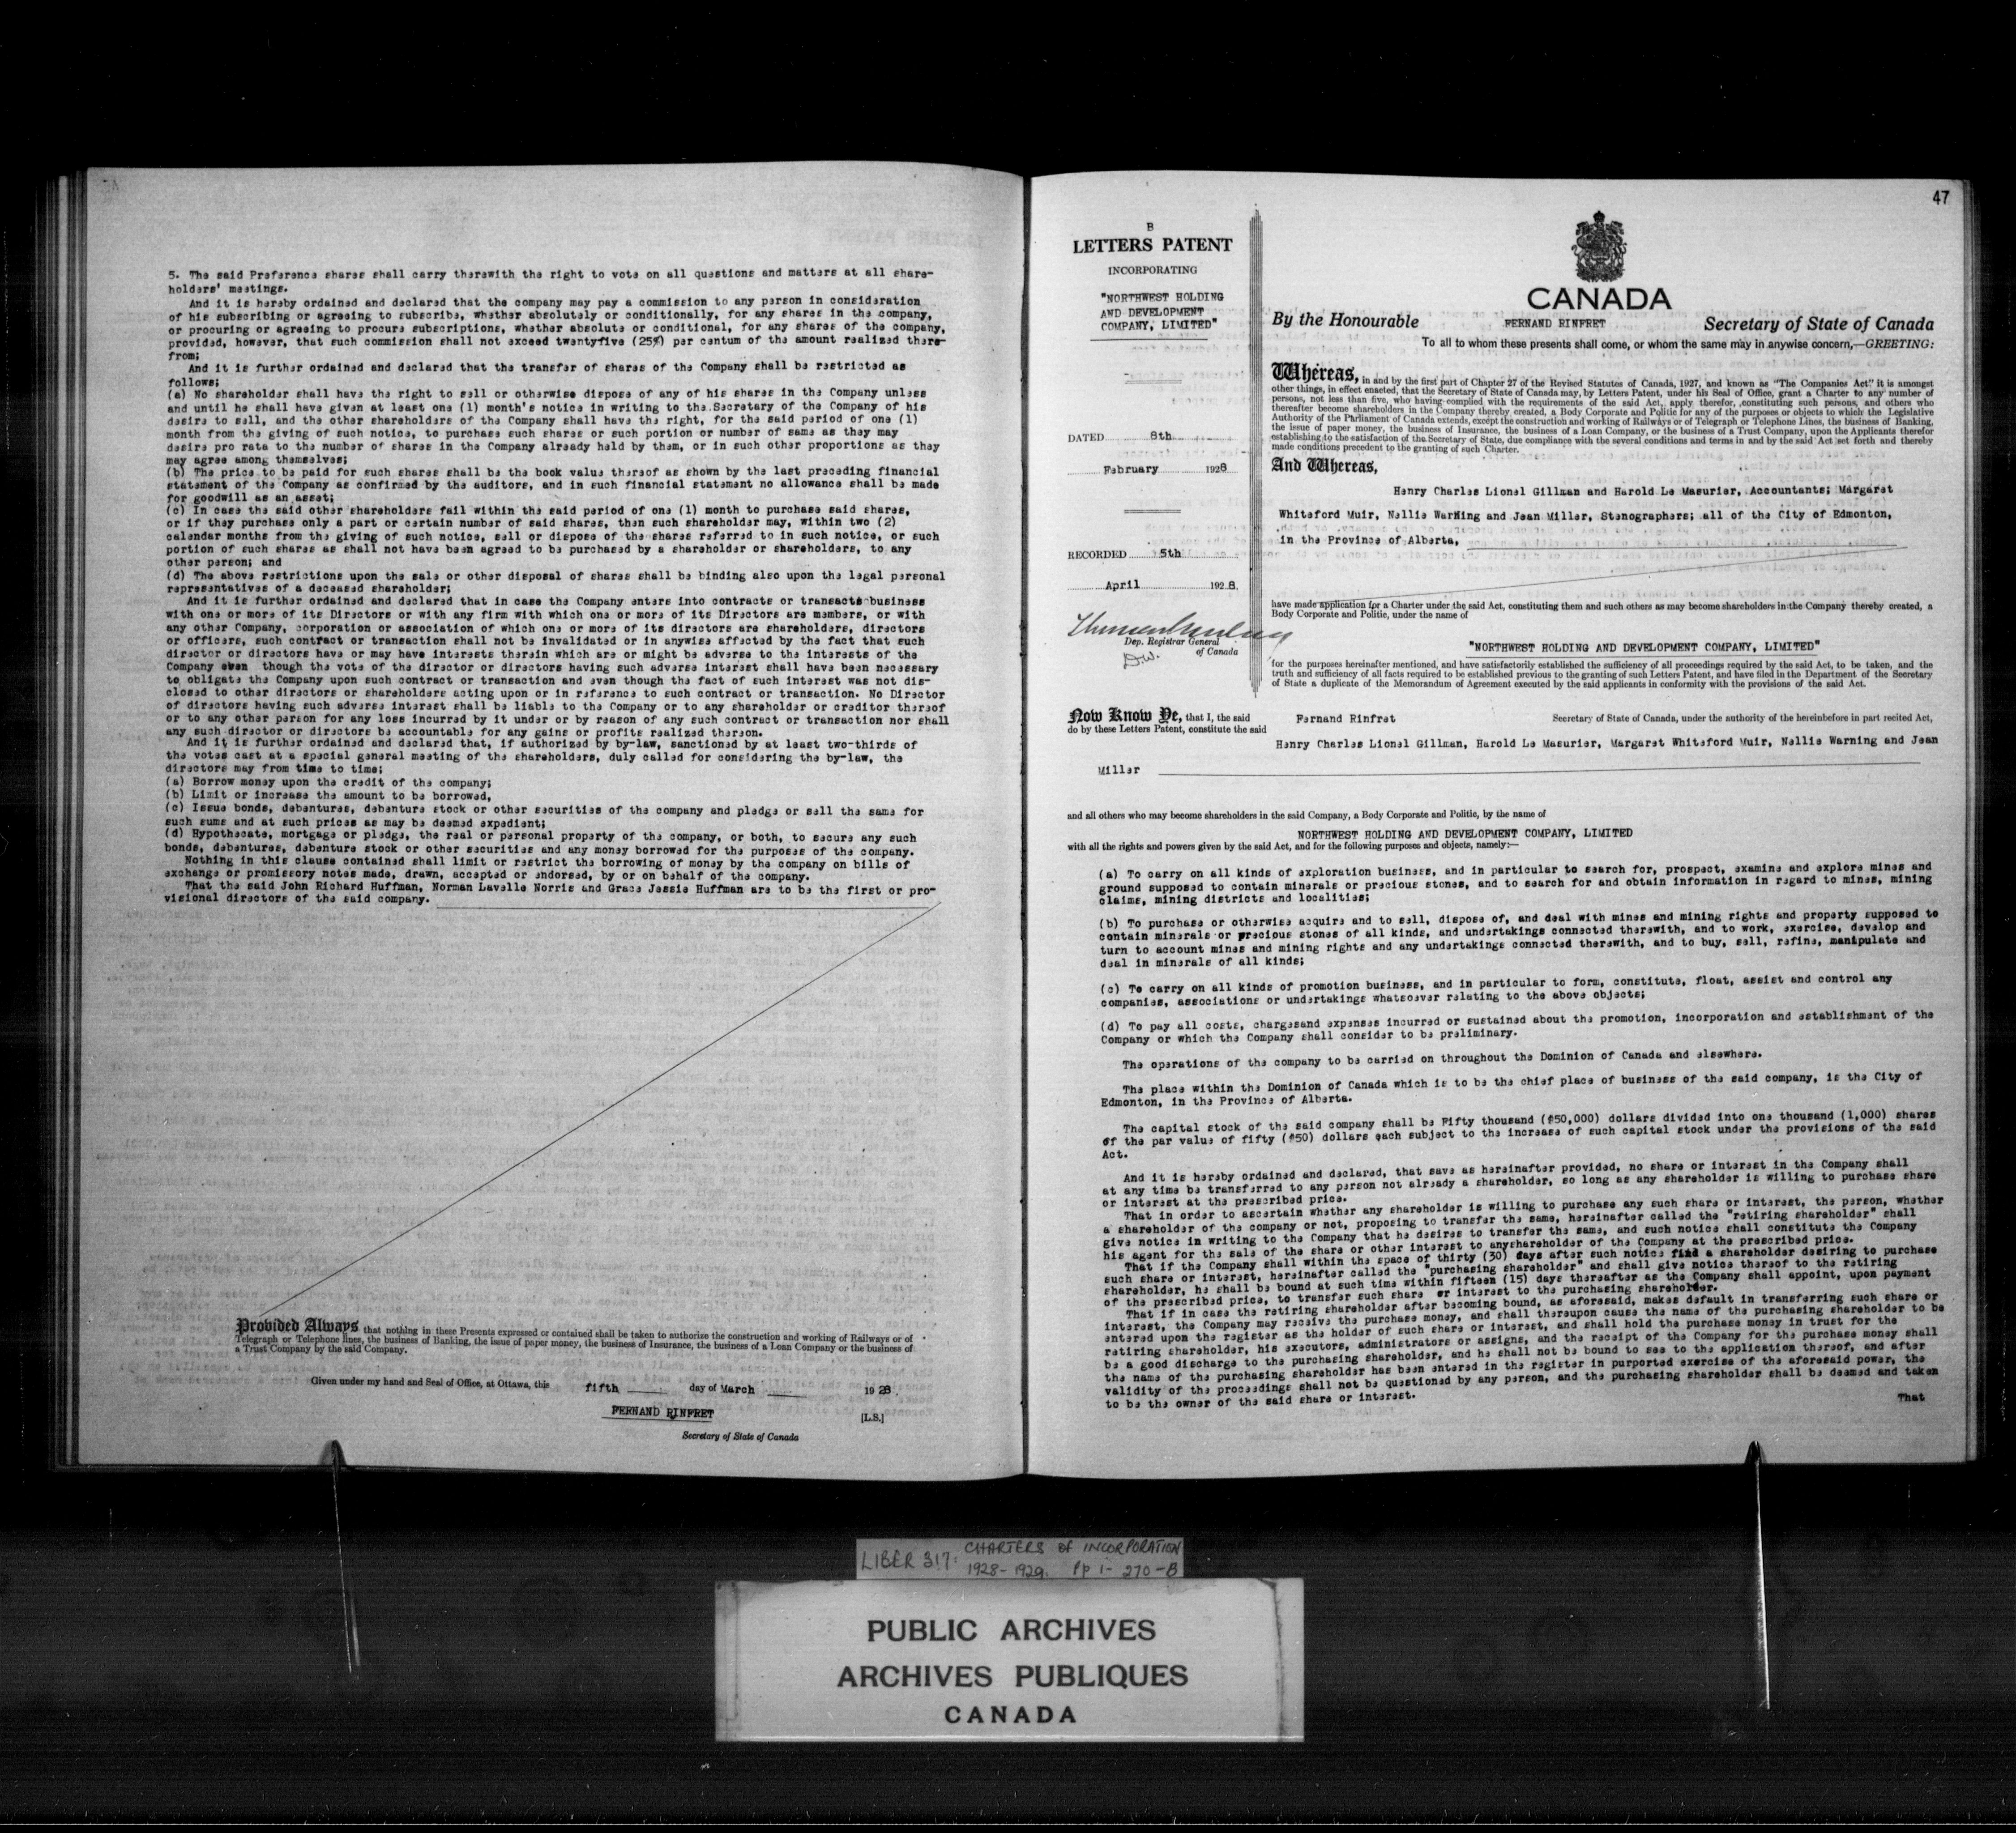 5. The said Preference shares shall carry therewith the right to vote on all questions and matters at all share-
holders' meetings.
And it is hereby ordained and declared that the company may pay a commission to any person in consideration
of his subscribing or agreeing to subscribe, whether absolutely or conditionally, for any shares in the company,
or procuring or agreeing to procure subscriptions, whether absolute or conditional, for any shares of the company,
provided, however, that such commission shall not exceed twentyfive (25%) per centum of the amount realized there-
from;
And it is further ordained and declared that the transfer of shares of the Company shall be restricted as
follows;
(a) No shareholder shall have the right to sell or otherwise dispose of any of his shares in the Company unless
and until he shall have given at least one (1) month's notice in writing to the Secretary of the Company of his
desire to sell, and the other shareholders of the Company shall have the right, for the said period of one (1)
month from the giving of such notice, to purchase such shares or such portion or number of same as they may
desire pro rata to the number of shares in the Company already held by them, or in such other proportions as they
may agree among themselves;
(b) The price to be paid for such shares shall be the book value thereof as shown by the last preceding financial
statement of the Company as confirmed by the auditors, and in such financial statement no allowance shall be made
for goodwill as an asset;
(c) In case the said other shareholders fail within the said period of one (1) month to purchase said shares,
or if they purchase only a part or certain number of said shares, then such shareholder may, within two (2)
calendar months from the giving of such notice, sell or dispose of the shares referred to in such notice, or such
portion of such shares as shall not have been agreed to be purchased by a shareholder or shareholders, to any
other person; and
(d) The above restrictions upon the sale or other disposal of shares shall be binding also upon the legal personal
representatives of a deceased shareholder;
And it is further ordained and declared that in case the Company enters into contracts or transacts business
with one or more of its Directors or with any firm with which one or more of its Directors are members, or with
any other Company, corporation or association of which one or more of its directors are shareholders, directors
or officers, such contract or transaction shall not be invalidated or in anywise affected by the fact that such
director or directors have or may have interests therein which are or might be adverse to the interests of the
Company even though the vote of the director or directors having such adverse interest shall have been necessary
to obligate the Company upon such contract or transaction and even though the fact of such interest was not dis-
closed to other directors or shareholders acting upon or in reference to such contract or transaction. No Director
of directors having such adverse interest shall be liable to the Company or to any shareholder or creditor thereof
or to any other person for any loss incurred by it under or by reason of any such contract or transaction nor shall
any such director or directors be accountable for any gains or profits realized thereon.
And it is further ordained and declared that, if authorized by by-law, sanctioned by at least two-thirds of
the votes cast at a special general meeting of the shareholders, duly called for considering the by-law, the
directors may from time to time;
(a) Borrow money upon the credit of the company;
(b) Limit or increase the amount to be borrowed,
(c) Issue bonds, debentures, debenture stock or other securities of the company and pledge or sell the same for
such sums and at such prices as may be deemed expedient;
(d) Hypothecate, mortgage or pledge, the real or personal property of the company, or both, to secure any such
bonds, debentures, debenture stock or other securities and any money borrowed for the purposes of the company.
Nothing in this clause contained shall limit or restrict the borrowing of money by the company on bills of
exchange or promissory notes made, drawn, accepted or endorsed, by or on behalf of the company.
That the said John Richard Huffman, Norman Lavelle Norris and Grace Jessie Huffman are to be the first or pro-
visional directors of the said company.
Provided Always that nothing in these Presents expressed or contained shall be taken to authorize the construction and working of Railways or of
Telegraph or Telephone lines, the business of Banking, the issue of paper money, the business of Insurance, the business of a Loan Company or the business of
a Trust Company by the said Company.
Given under my hand and Seal of Office, at Ottawa, this fifth day of March 1928.
FERNAND RINFRET [L.S.]
Secretary of State of Canada
47
B
LETTERS PATENT
INCORPORATING
"NORTHWEST HOLDING
AND DEVELOPMENT
COMPANY, LIMITED"
DATED 8th
February 1928
RECORDED 5th
April 1928.
Dep. Registrar General
of Canada
D.W.
CANADA
By the Honourable FERNAND RINFRET Secretary of State of Canada
To all to whom these presents shall come, or whom the same may in anywise concern,—GREETING:
Whereas, in and by the first part of Chapter 27 of the Revised Statutes of Canada, 1927, and known as "The Companies Act" it is amongst
other things, in effect enacted, that the Secretary of State of Canada may, by Letters Patent, under his Seal of Office, grant a Charter to any number of
persons, not less than five, who having complied with the requirements of the said Act, apply therefor, constituting such persons, and others who
thereafter become shareholders in the Company thereby created, a Body Corporate and Politic for any of the purposes or objects to which the Legislative
Authority of the Parliament of Canada extends, except the construction and working of Railways or of Telegraph or Telephone Lines, the business of Banking,
the issue of paper money, the business of Insurance, the business of a Loan Company, or the business of a Trust Company, upon the Applicants therefor
establishing to the satisfaction of the Secretary of State, due compliance with the several conditions and terms in and by the said Act set forth and thereby
made conditions precedent to the granting of such Charter.
And Whereas,
Henry Charles Lionel Gillman and Harold Le Masurier, Accountants; Margaret
Whiteford Muir, Nellie Warning and Jean Miller, Stenographers; all of the City of Edmonton,
in the Province of Alberta,
have made application for a Charter under the said Act, constituting them and such others as may become shareholders in the Company thereby created, a
Body Corporate and Politic, under the name of
"NORTHWEST HOLDING AND DEVELOPMENT COMPANY, LIMITED"
for the purposes hereinafter mentioned, and have satisfactorily established the sufficiency of all proceedings required by the said Act, to be taken, and the
truth and sufficiency of all facts required to be established previous to the granting of such Letters Patent, and have filed in the Department of the Secretary
of State a duplicate of the Memorandum of Agreement executed by the said applicants in conformity with the provisions of the said Act.
Now Know Ye, that I, the said Fernand Rinfret Secretary of State of Canada, under the authority of the hereinbefore in part recited Act,
do by these Letters Patent, constitute the said
Henry Charles Lionel Gillman, Harold Le Masurier, Margaret Whiteford Muir, Nellie Warning and Jean
Miller
and all others who may become shareholders in the said Company, a Body Corporate and Politic, by the name of
NORTHWEST HOLDING AND DEVELOPMENT COMPANY, LIMITED
with all the rights and powers given by the said Act, and for the following purposes and objects, namely:—
(a) To carry on all kinds of exploration business, and in particular to search for, prospect, examine and explore mines and
ground supposed to contain minerals or precious stones, and to search for and obtain information in regard to mines, mining
claims, mining districts and localities;
(b) To purchase or otherwise acquire and to sell, dispose of, and deal with mines and mining rights and property supposed to
contain minerals or precious stones of all kinds, and undertakings connected therewith, and to work, exercise, develop and
turn to account mines and mining rights and any undertakings connected therewith, and to buy, sell, refine, manipulate and
deal in minerals of all kinds;
(c) To carry on all kinds of promotion business, and in particular to form, constitute, float, assist and control any
companies, associations or undertakings whatsoever relating to the above objects;
(d) To pay all costs, chargesand expenses incurred or sustained about the promotion, incorporation and establishment of the
Company or which the Company shall consider to be preliminary.
The operations of the company to be carried on throughout the Dominion of Canada and elsewhere.
The place within the Dominion of Canada which is to be the chief place of business of the said company, is the City of
Edmonton, in the Province of Alberta.
The capital stock of the said company shall be Fifty thousand ($50,000) dollars divided into one thousand (1,000) shares
of the par value of fifty ($50) dollars each subject to the increase of such capital stock under the provisions of the said
Act.
And it is hereby ordained and declared, that save as hereinafter provided, no share or interest in the Company shall
at any time be transferred to any person not already a shareholder, so long as any shareholder is willing to purchase share
or interest at the prescribed price.
That in order to ascertain whether any shareholder is willing to purchase any such share or interest, the person, whether
a shareholder of the company or not, proposing to transfer the same, hereinafter called the "retiring shareholder" shall
give notice in writing to the Company that he desires to transfer the same, and such notice shall constitute the Company
his agent for the sale of the share or other interest to anyshareholder of the Company at the prescribed price.
That if the Company shall within the space of thirty (30) days after such notice find a shareholder desiring to purchase
such share or interest, hereinafter called the "purchasing shareholder" and shall give notice thereof to the retiring
shareholder, he shall be bound at such time within fifteen (15) days thereafter as the Company shall appoint, upon payment
of the prescribed price, to transfer such share or interest to the purchasing shareholder.
That if in case the retiring shareholder after becoming bound, as aforesaid, makes default in transferring such share or
interest, the Company may receive the purchase money, and shall thereupon cause the name of the purchasing shareholder to be
entered upon the register as the holder of such share or interest, and shall hold the purchase money in trust for the
retiring shareholder, his executors, administrators or assigns, and the receipt of the Company for the purchase money shall
be a good discharge to the purchasing shareholder, and he shall not be bound to see to the application thereof, and after
the name of the purchasing shareholder has been entered in the register in purported exercise of the aforesaid power, the
validity of the proceedings shall not be questioned by any person, and the purchasing shareholder shall be deemed and taken
to be the owner of the said share or interest.
That
LIBER 317: CHARTERS OF INCORPORATION
1928-1929. Pp 1- 270-B
PUBLIC ARCHIVES
ARCHIVES PUBLIQUES
CANADA